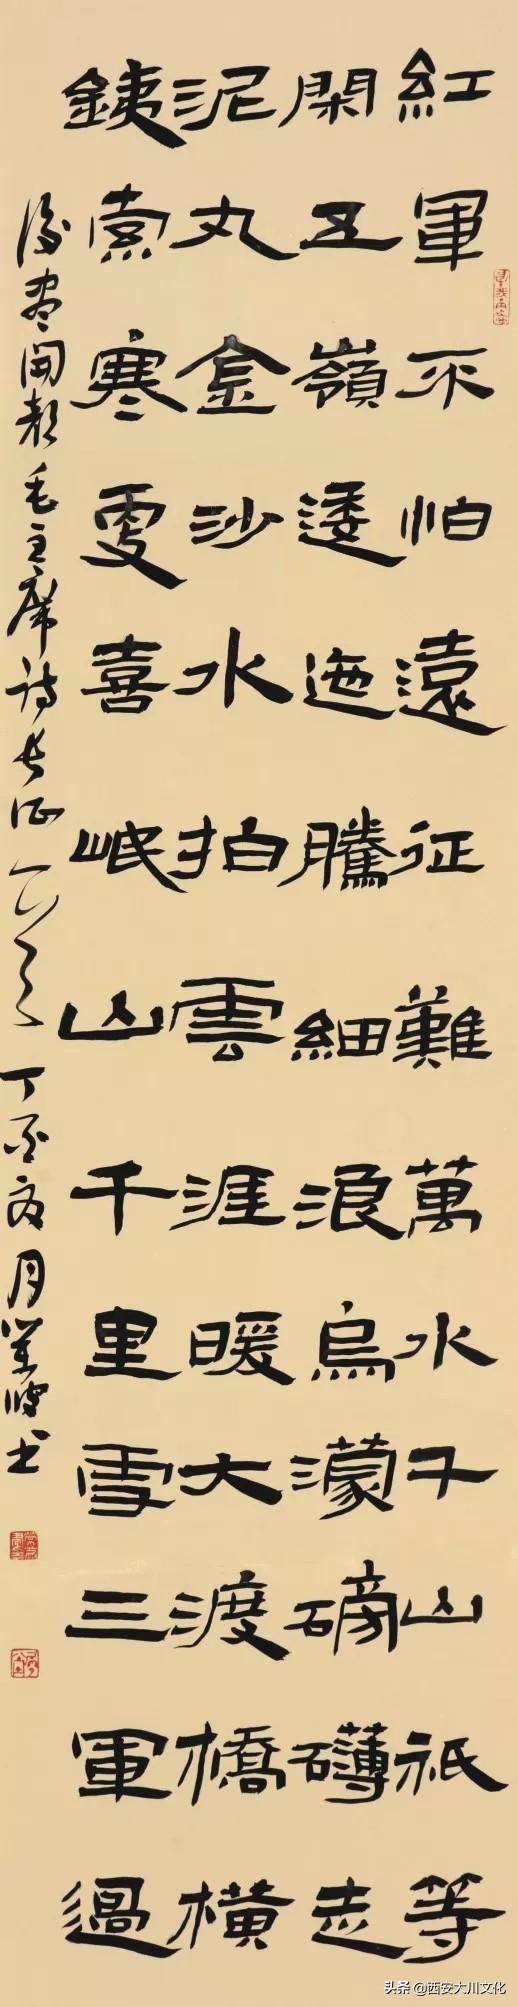 紅軍不怕遠征難萬水千山祇等
閑五嶺逶迤騰細浪烏濛磅礴走
泥丸金沙水拍雲涯暖大渡橋橫
銕索寒更喜岷山千里雪三軍過
後盡開顏毛主席詩長征一首丁酉月書
头条 @西安大川文化